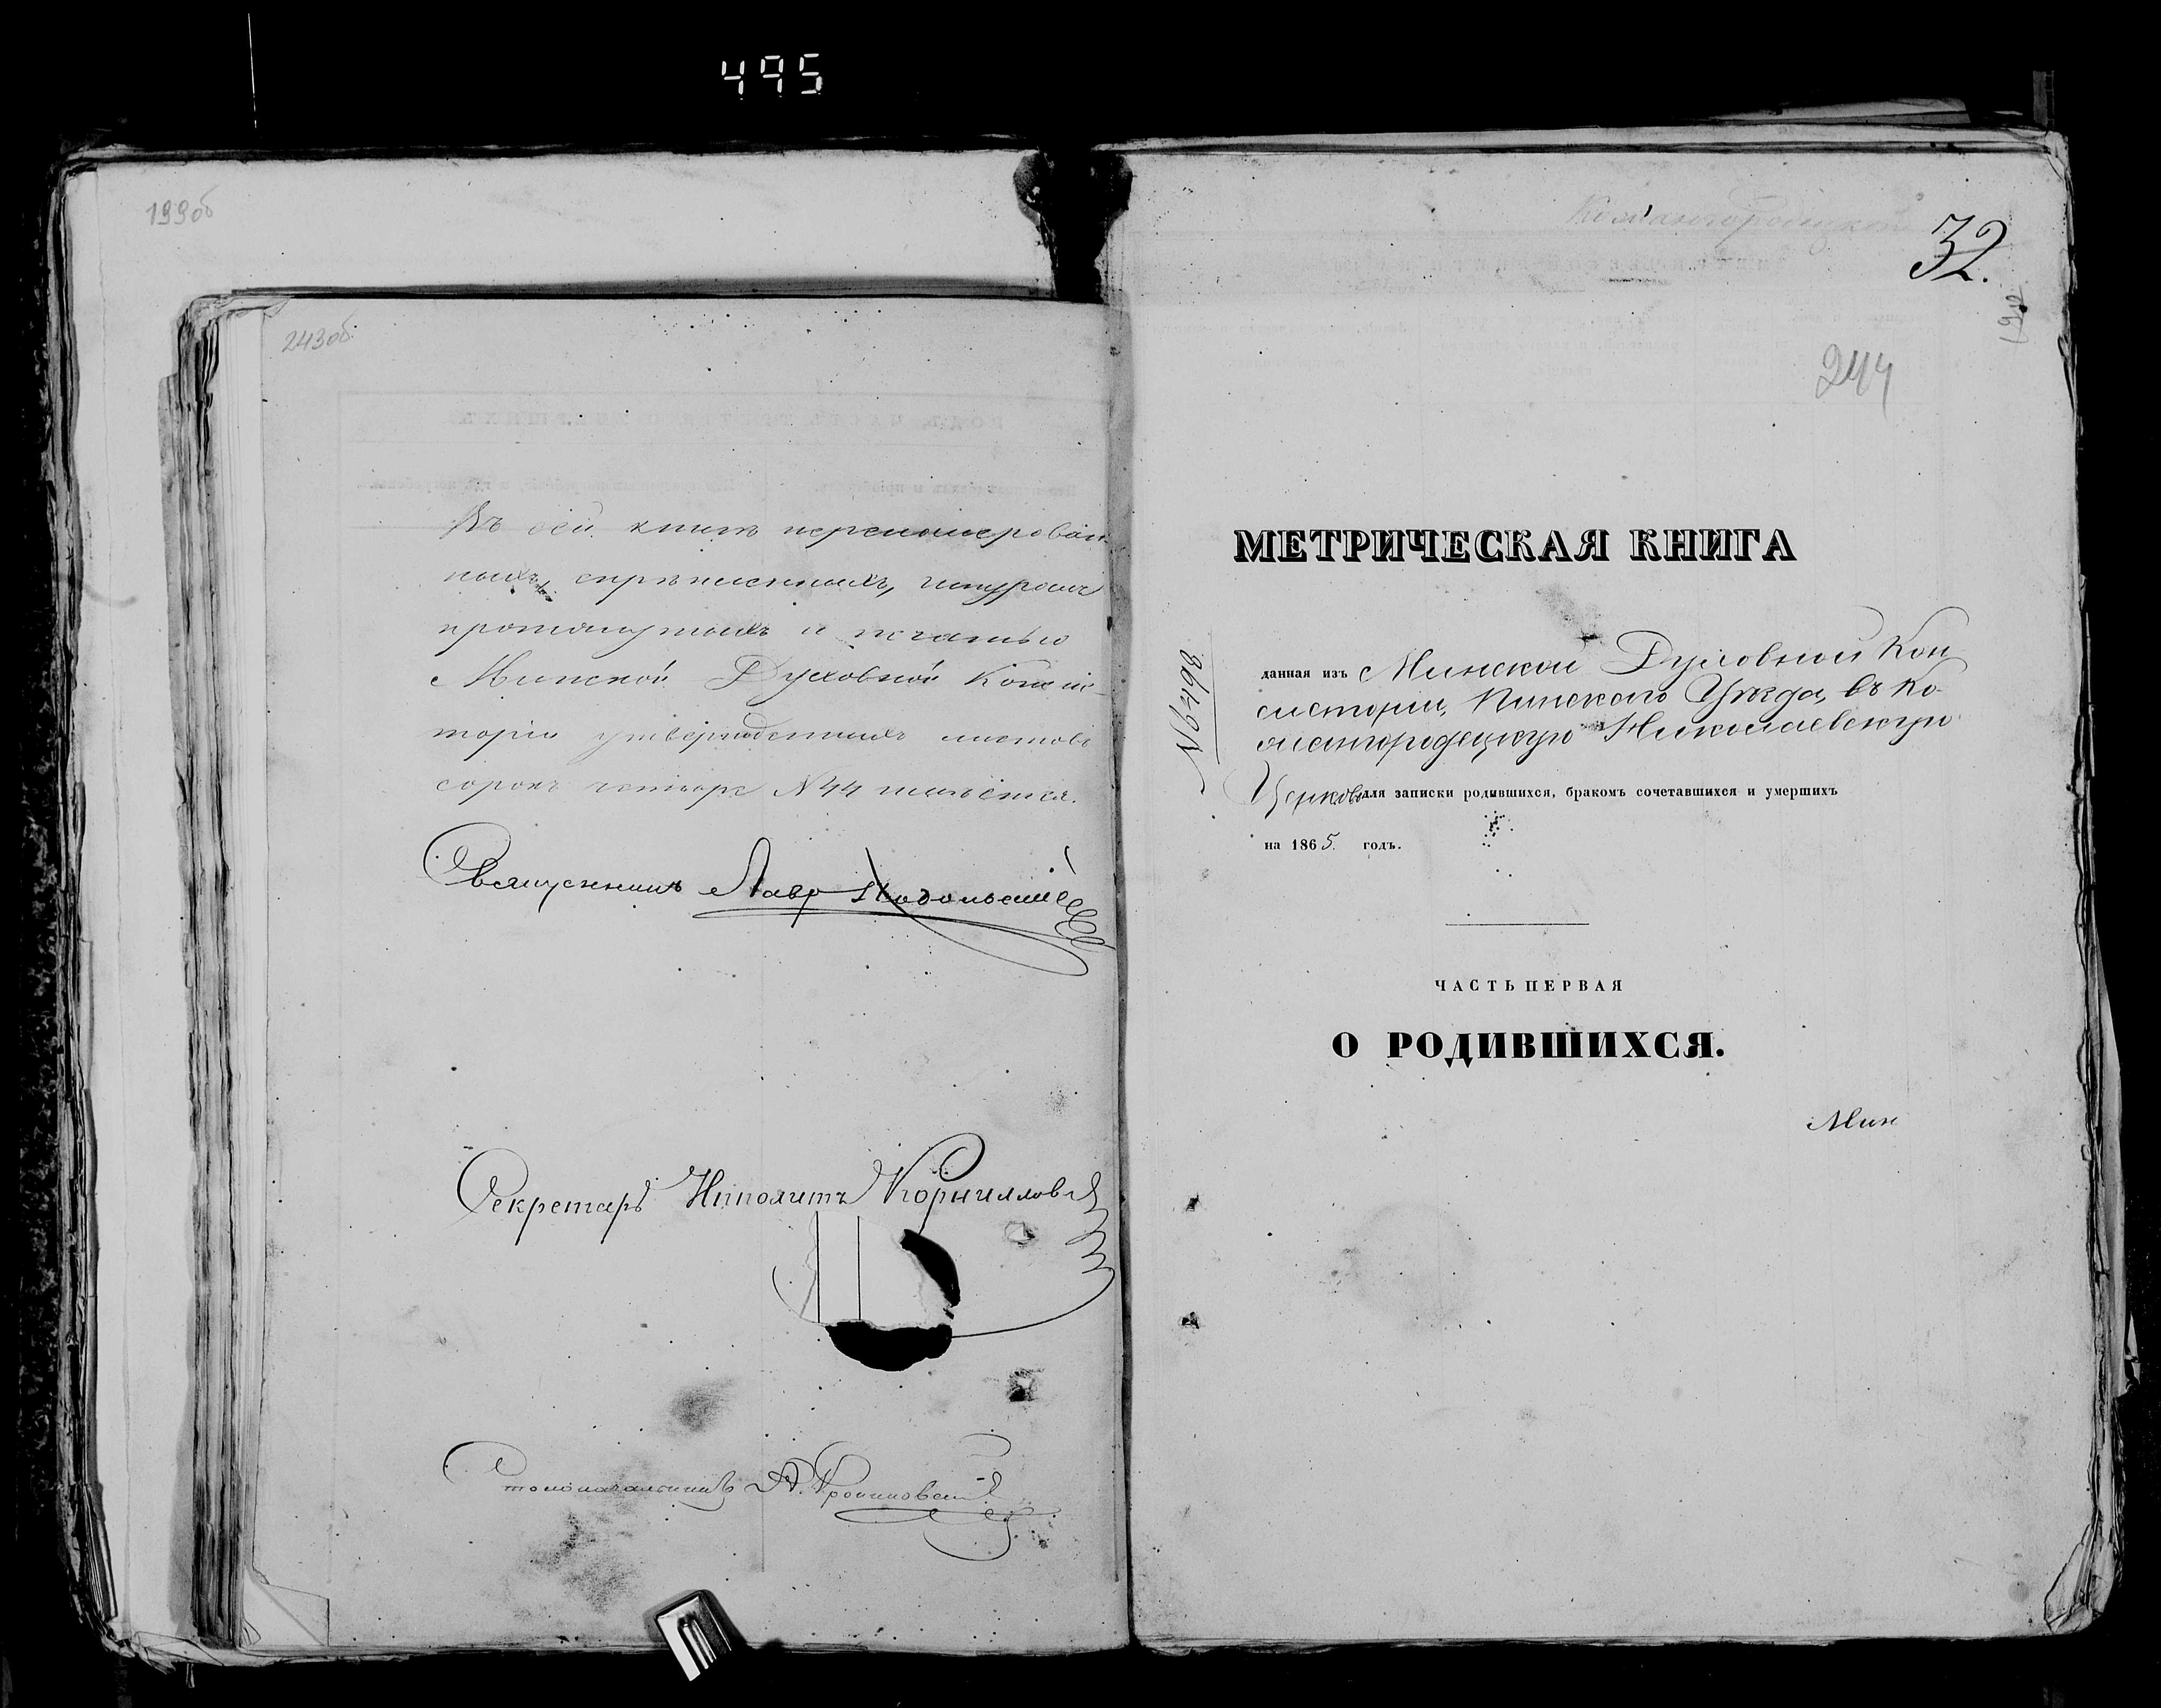 495
199об
243об.
Въ сей книгѣ переномерован-
ныхъ, скрѣпленныхъ, шнуромъ
протянутыхъ и печатью
Минской Духовной Консис-
торіи утвержденныхъ листовъ
сорокъ четыре №44 имѣется.
Священникъ Лавр
Секретарь Ипполитъ Корниллов
Столоначальникъ А.
Кожангородецкой
32.
244
№2498
МЕТРИЧЕСКАЯ КНИГА
данная изъ Минской Духовной Кон
систоріи, Пинского Уѣзда, въ Ко-
жангородецкую Николаевскую
Церковь для записки родившихся, бракомъ сочетавшихся и умершихъ
на 1865. годъ.
ЧАСТЬ ПЕРВАЯ
О РОДИВШИХСЯ.
Мин